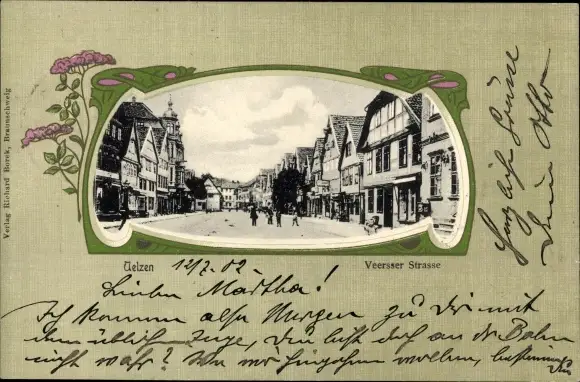 Uelzen
Veersser Strasse
12/7.02.
Liebe Martha!
Ich komme also Morgen zu Dir mit
dem üblichen Zuge, Du bist doch an der Bahn
nicht wahr? Wo wir hingehen wollen, bestimmst
Du
Herzliche Grüsse
Dein Otto
Verlag Richard Borek, Braunschweig